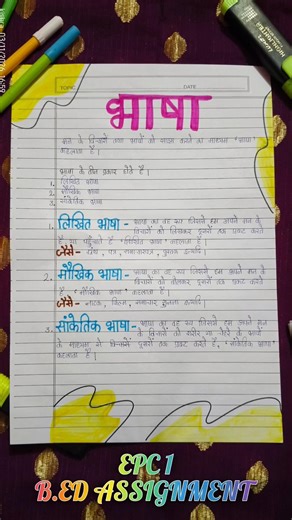 TOPIC DATE
भाषा
मन के विचारों तथा भावों को व्यक्त करने का माध्यम 'भाषा'
कहलाता है।
भाषा के तीन प्रकार होते हैं।
1. लिखित भाषा
2. मौखिक भाषा
3. सांकेतिक भाषा
1. लिखित भाषा - भाषा का वह रूप जिसमें हम अपने मन के
विचारों को लिखकर दूसरों तक प्रकट करते
हैं या पहुँचाते हैं 'लिखित भाषा' कहलाता है।
जैसे - लेख, पत्र, समाचारपत्र, पुस्तक इत्यादि।
2. मौखिक भाषा - भाषा का वह रूप जिसमें हम अपने मन के
विचारों को बोलकर दूसरों तक प्रकट करते
हैं, 'मौखिक भाषा' कहलाता है।
जैसे - नाटक, फिल्म, समाचार सुनना इत्यादि।
3. सांकेतिक भाषा - भाषा का वह रूप जिसमें हम अपने मन
के विचारों को शरीर या चेहरे के भावों
के माध्यम से विचारों दूसरों तक प्रकट करते हैं, 'सांकेतिक भाषा'
कहलाता है।
EPC 1
B.ED ASSIGNMENT